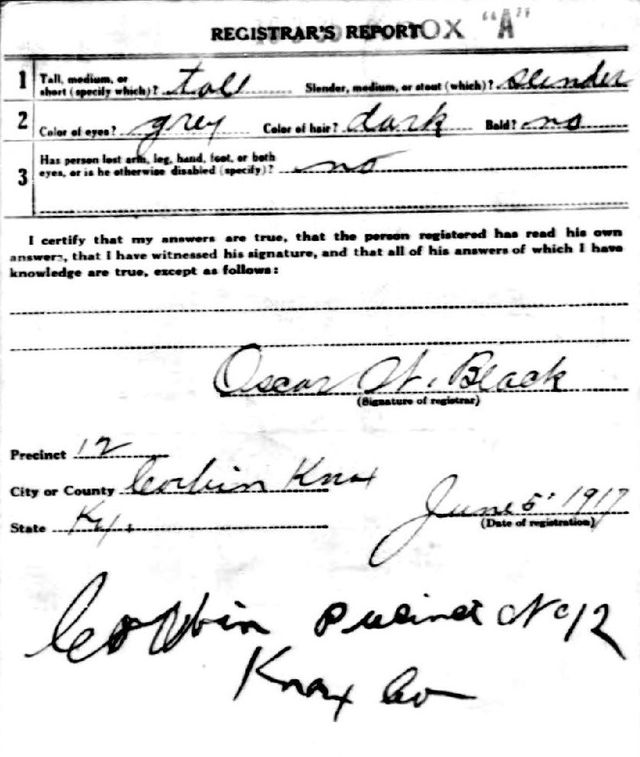 REGISTRAR'S REPORT OX "A"
1 Tall, medium, or short (specify which)? tall Slender, medium, or stout (which)? slender
2 Color of eyes? grey Color of hair? dark Bald? no
3 Has person lost arm, leg, hand, foot, or both
eyes, or is he otherwise disabled (specify)? no
I certify that my answers are true, that the person registered has read his own
answers, that I have witnessed his signature, and that all of his answers of which I have
knowledge are true, except as follows:
Oscar W. Black
(Signature of registrar)
Precinct 12
City or County Corbin Knox
State Ky.
June 5. 1917
(Date of registration)
Corbin Precinct No 12
Knox Co